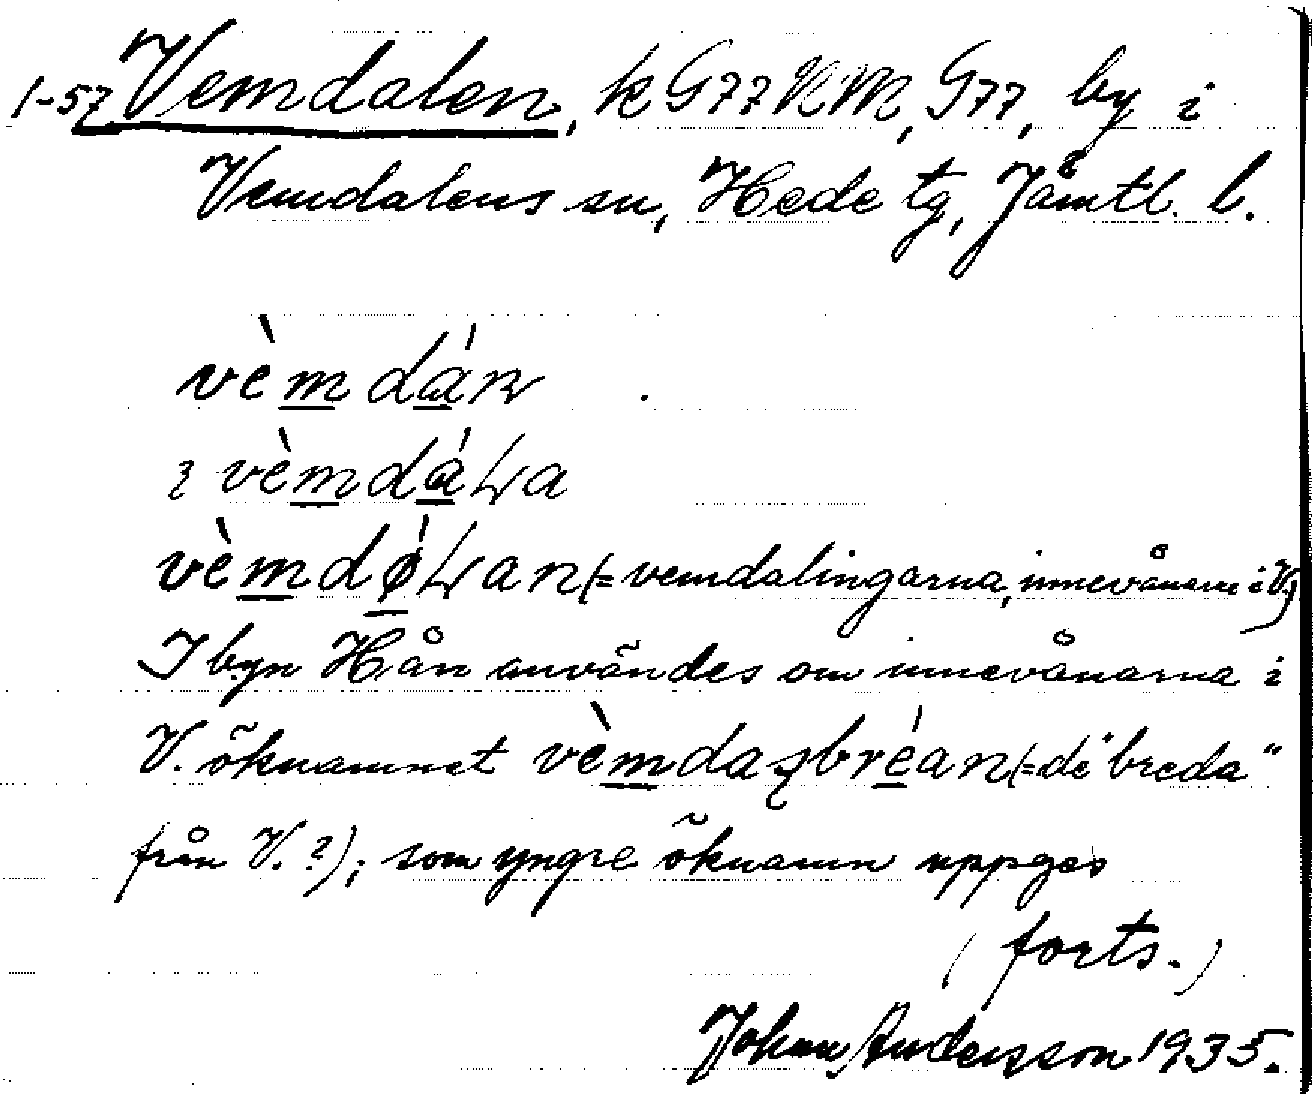 1-57 Vemdalen, k G77 NM, G77, by i
Vemdalens sn, Hede tg, Jämtl. l.
vèmdán
i vèmdáLa
vèmdǿLan (= vemdalingarna, innevånarna i V.)
I byn Hån användes om innevånarna i
V. öknamnet vèmdaʂbréan (= de "breda"
från V.?); som yngre öknamn uppges
(forts.)
Johan Andersson 1935.